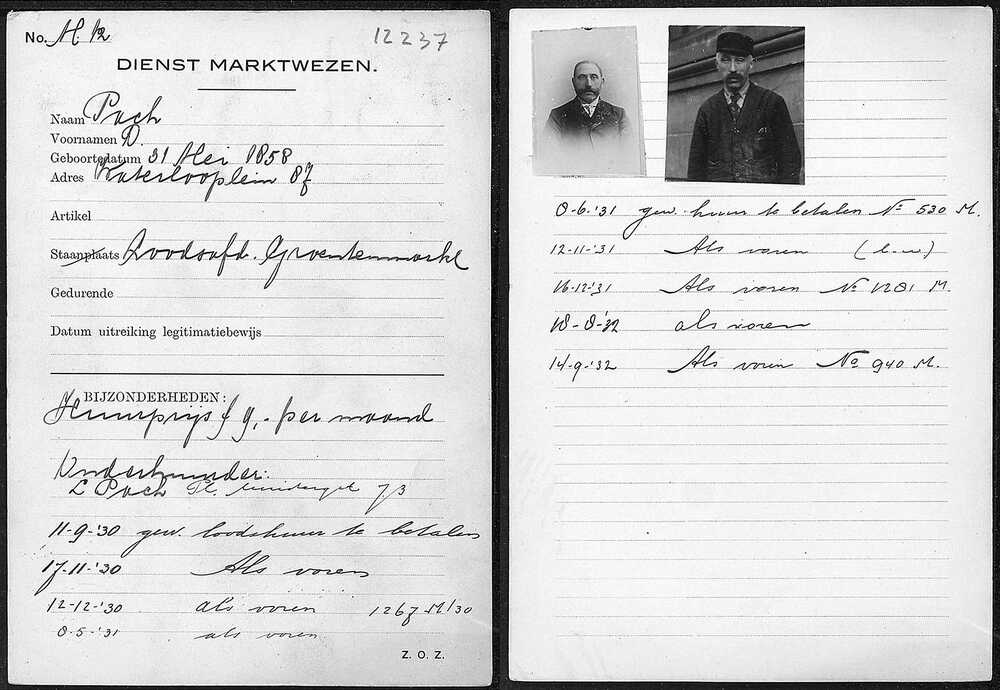 No. M. 12
12237
DIENST MARKTWEZEN.
Naam Pach
Voornamen D.
Geboortedatum 31 Mei 1858
Adres Waterlooplein 87
Artikel
Staanplaats Loodsafd. Groentenmarkt
Gedurende
Datum uitreiking legitimatiebewijs
BIJZONDERHEDEN:
Huurprijs f 9,- per maand
Onderhuurder:
L Pach Pl. 73
11-9-'30 gew. loodshuur te betalen
17-11-'30 Als voren
12-12-'30 als voren 1267 M/30
8-5-'31 als voren
Z. O. Z.
8-6-'31 gew. huur te betalen No 530 M.
12-11-'31 Als voren
16-12-'31 Als voren No 1281 M.
18-8-'32 als voren
14-9-'32 Als voren No 940 M.